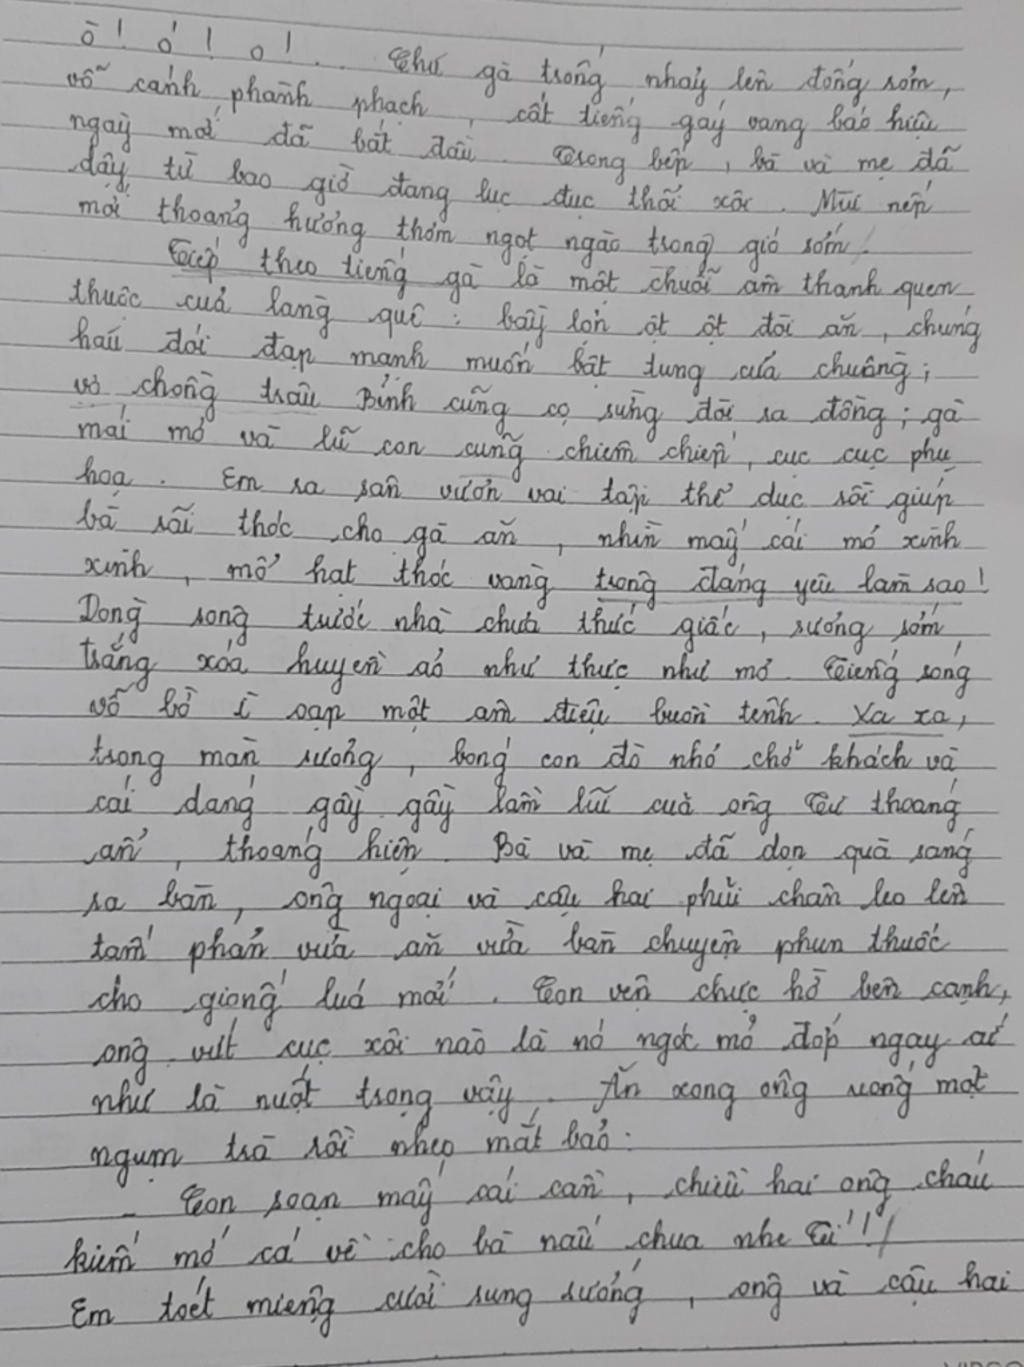 ò! ó! o!... Chú gà trống nhảy lên đống rơm,
vỗ cánh phành phạch, cất tiếng gáy vang báo hiệu
ngày mới đã bắt đầu. Trong bếp, bà và mẹ đã
dậy từ bao giờ đang lục đục thổi xôi. Mùi nếp
mới thoang hương thơm ngọt ngào trong gió sớm.
Tiếp theo tiếng gà là một chuỗi âm thanh quen
thuộc của làng quê: bầy lợn ột ột đòi ăn, chúng
háu đói đạp mạnh muốn bật tung cửa chuồng;
vợ chồng trâu Bỉnh cũng cọ sừng đòi ra đồng; gà
mái mơ và lũ con cũng chiêm chiếp, cục cục phụ
hoạ. Em ra sân vươn vai tập thể dục rồi giúp
bà rải thóc cho gà ăn, nhìn mấy cái mỏ xinh
xinh, mổ hạt thóc vàng trong đáng yêu làm sao!
Dòng sông trước nhà chưa thức giấc, sương sớm
trắng xóa huyền ảo như thực như mơ. Tiếng sóng
vỗ bờ ì oạp một âm điệu buồn tênh. Xa xa,
trong màn sương, bóng con đò nhỏ chở khách và
cái dáng gầy gầy lầm lũi của ông Tư thoáng
ẩn, thoáng hiện. Bà và mẹ đã dọn quà sáng
ra bàn, ông ngoại và cậu hai phủi chân leo lên
tấm phản vừa ăn vừa bàn chuyện phun thuốc
cho giống lúa mới. Con vện chực hờ bên cạnh,
ông vứt cục xôi nào là nó ngóc mỏ đớp ngay ắt
như là nuốt trọng vậy. Ăn xong ông uống một
ngụm trà rồi nheo mắt bảo:
- Con soạn mấy cái cần, chiều hai ông cháu
kiếm mớ cá về cho bà nấu chua nhe Tí!
Em toét miệng cười sung sướng, ông và cậu hai